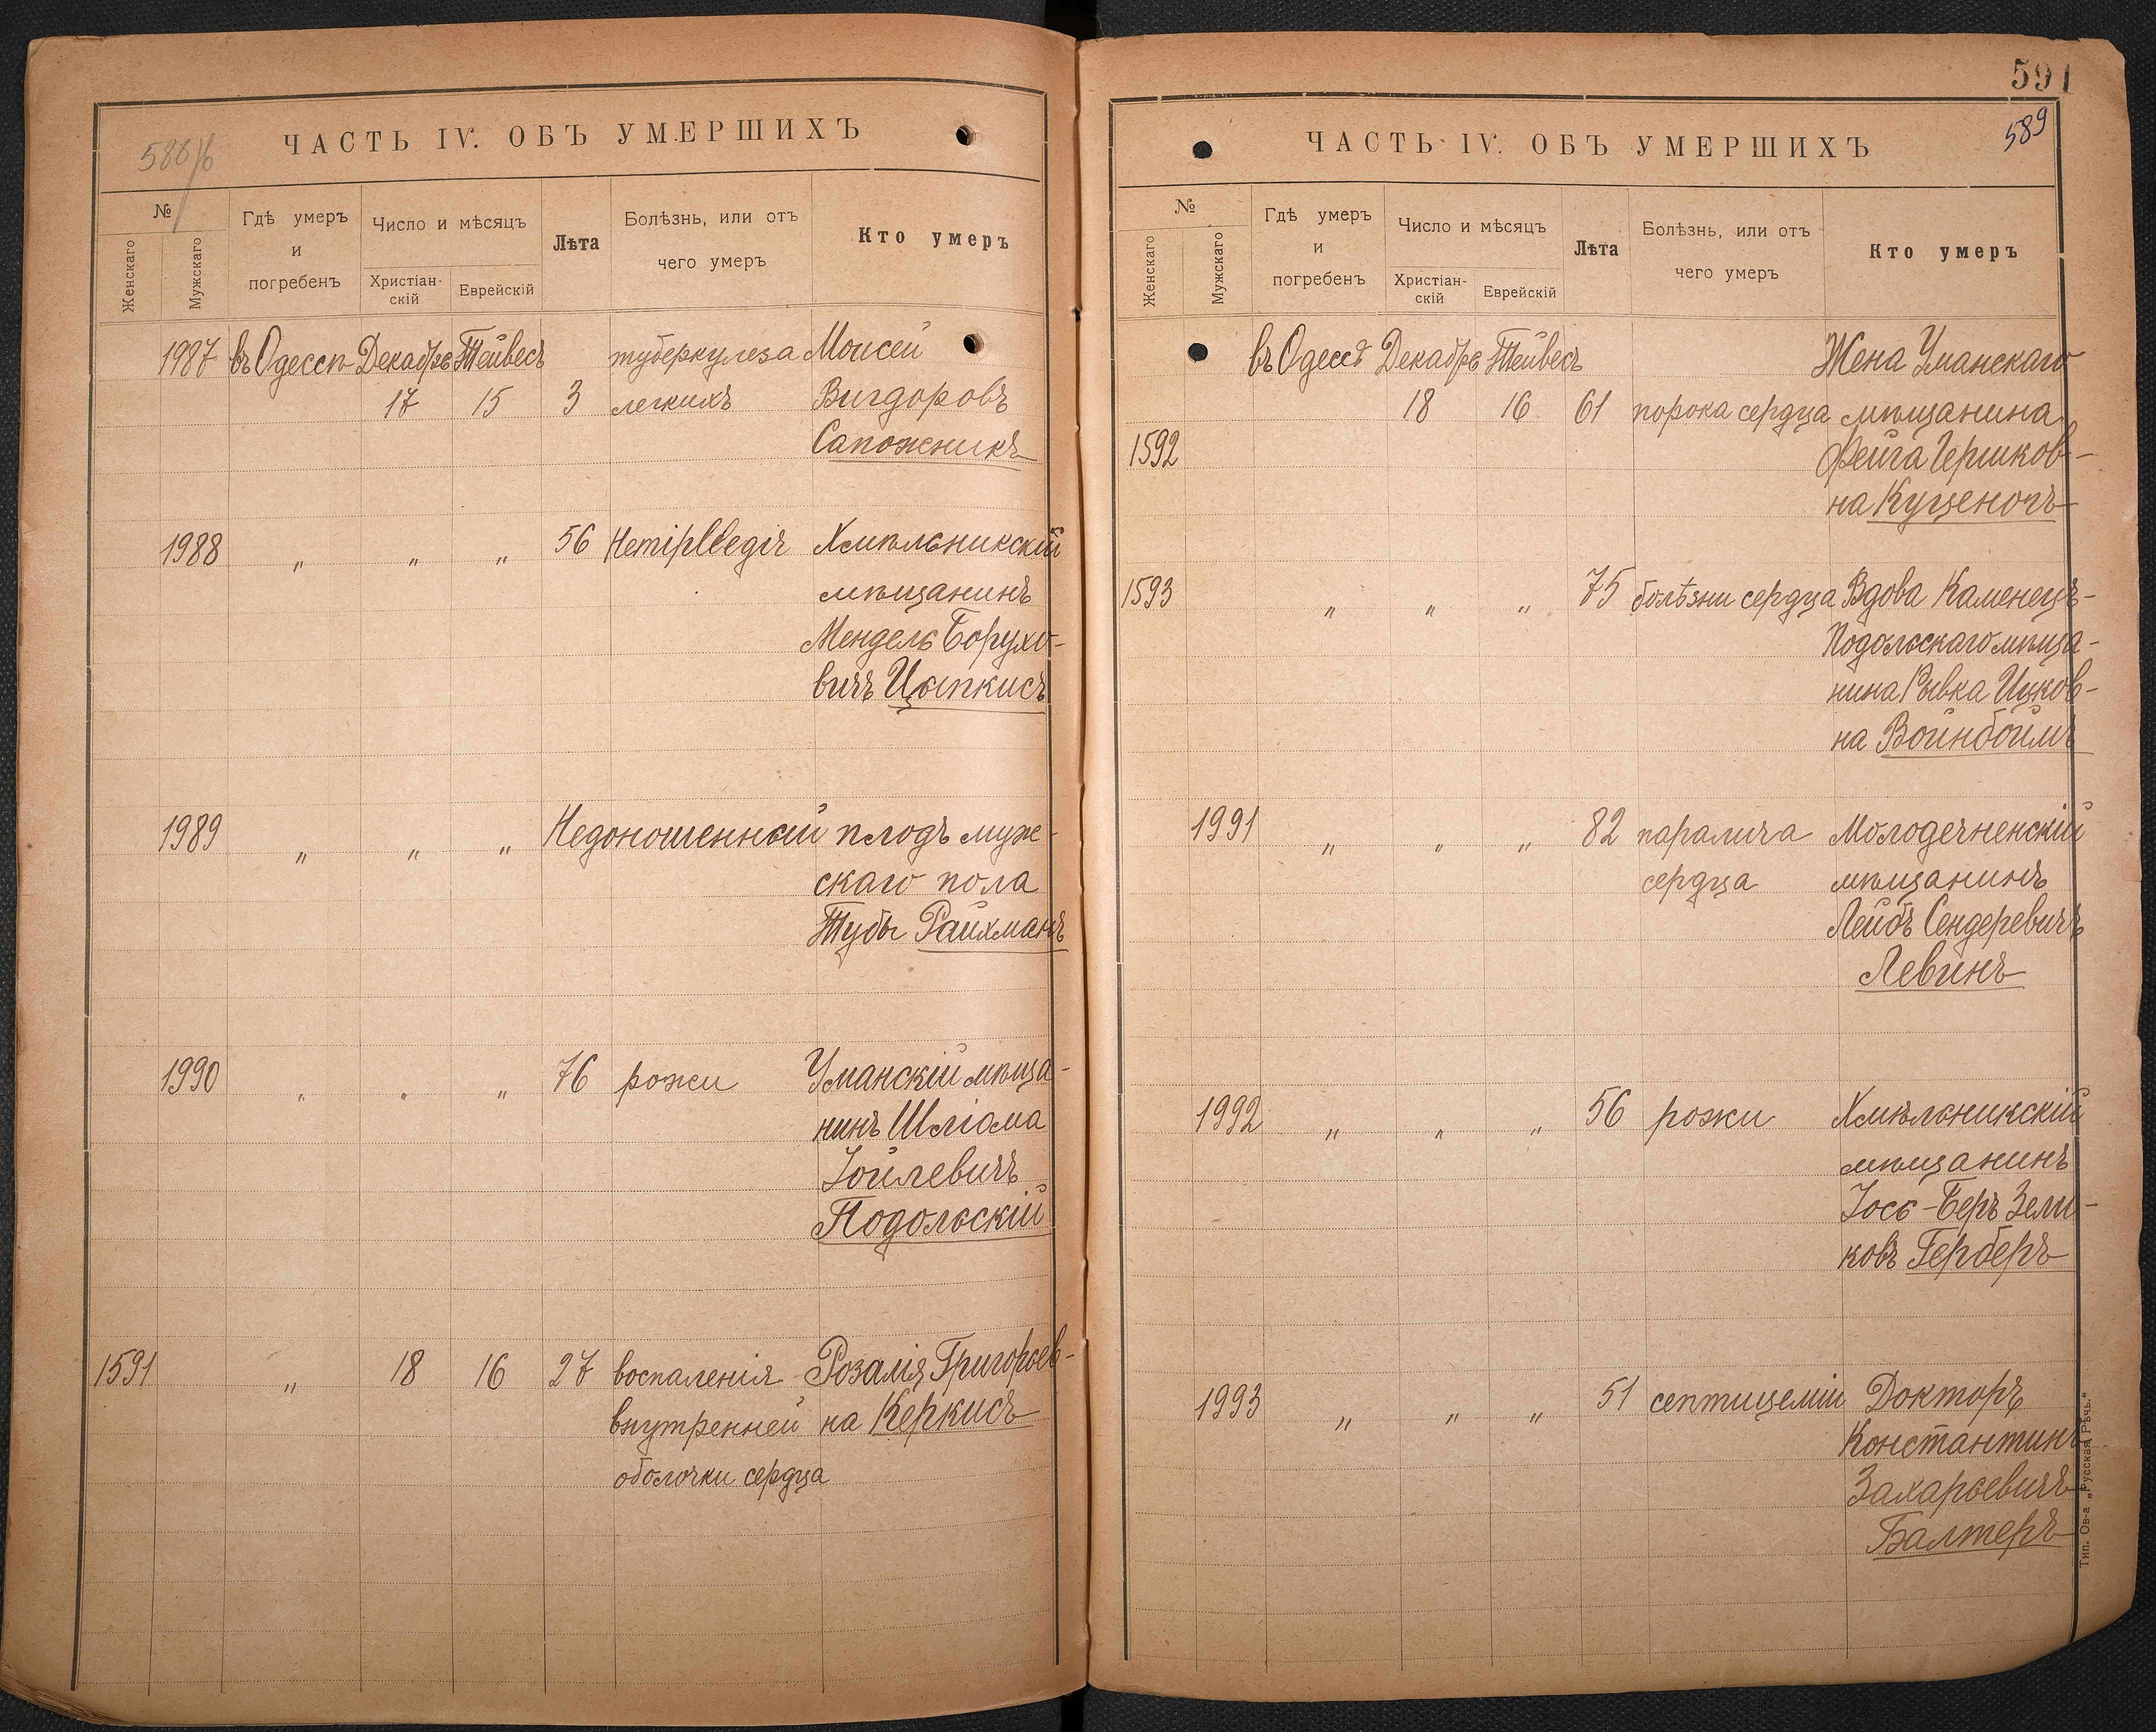 588/б
ЧАСТЬ IV. ОБЪ УМЕРШИХЪ
№
Женскаго
Мужскаго
Гдѣ умеръ
и
погребенъ
Число и мѣсяцъ
Христіан-
скій
Еврейскій
Лѣта
Болѣзнь, или отъ
чего умеръ
Кто умеръ
1987 въ Одессѣ Декабрь Тейвесъ туберкулеза Моисей
17 15 3 легкихъ Вигдоровъ
Сапожникъ
1988 „ „ „ 56 Hemipleegiя Хмѣльникскій
мѣщанинъ
Мендель Борухо-
вичъ Цыпкисъ
1989 „ „ „ Недоношенный плодъ муж-
скаго пола
Тубы Райхманъ
1990 „ „ „ 76 рожи Уманскій мѣща-
нинъ Шліома
Іойлевичъ
Подольскій
1591 „ 18 16 27 воспаленія Розалія Григорьев-
внутренней на Керкисъ
оболочки сердца
591
589
ЧАСТЬ IV. ОБЪ УМЕРШИХЪ
№
Женскаго
Мужскаго
Гдѣ умеръ
и
погребенъ
Число и мѣсяцъ
Христіан-
скій
Еврейскій
Лѣта
Болѣзнь, или отъ
чего умеръ
Кто умеръ
въ Одессѣ Декабрь Тейвесъ Жена Уманскаго
18 16 61 порока сердца мѣщанина
1592 Фейга Гершков-
на Куценогъ
1593 „ „ „ 75 болѣзни сердца Вдова Каменецъ-
Подольскаго мѣща-
нина Рывка Ицков-
на Войнбоймъ
1991 „ „ „ 82 паралича Молодечненскій
сердца мѣщанинъ
Лейбъ Сендеревичъ
Левинъ
1992 „ „ „ 56 рожи Хмѣльникскій
мѣщанинъ
Іось-Беръ Зели-
ковъ Герберъ
1993 „ „ „ 51 септицеміи Докторъ
Константинъ
Захарьевичъ
Балтеръ
Тип. Ов-а „Русская Рѣчь."